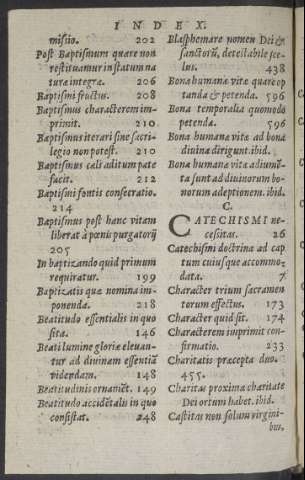 INDEX.
missio. 202
Post Baptismum quare non
restituamur in statum na
turæ integræ. 206
Baptismi fructus. 208
Baptismus characterem im-
primit. 210
Baptismus iterari sine sacri-
legio non potest. 210
Baptismus cæli aditum pate
facit. 212
Baptismi fontis consecratio.
214
Baptismus post hanc vitam
liberat à pœnis purgatorij
205
In baptizando quid primum
requiratur. 199
Baptizatis quæ nomina im-
ponenda. 218
Beatitudo essentialis in quo
sita. 146
Beati lumine gloriæ eleuan-
tur ad diuinam essentiã
videndam. 148
Beatitudinis ornamẽt. 149
Beatitudo accidẽtalis in quo
consistat. 248
Blasphemare nomen Dei &
sanctorũ, detestabile sce-
lus. 438
Bona humanæ vitæ quare op
tanda & petenda. 596
Bona temporalia quomodo
petenda. 596
Bona humanæ vitæ ad bona
diuina dirigunt. ibid.
Bona humanæ vitæ adiumẽ-
ta sunt ad diuinorum bo-
norum adeptionem. ibid.
C.
CATECHISMI ne-
cessitas. 26
Catechismi doctrina ad cap
tum cuiusque accommo-
data. 7
Character trium sacramen
torum effectus. 173
Character quid sit. 174
Characterem imprimit con-
firmatio. 233
Charitatis præcepta duo.
455.
Charitas proxima charitate
Dei ortum habet. ibid.
Castitas non solum virgini-
bus,